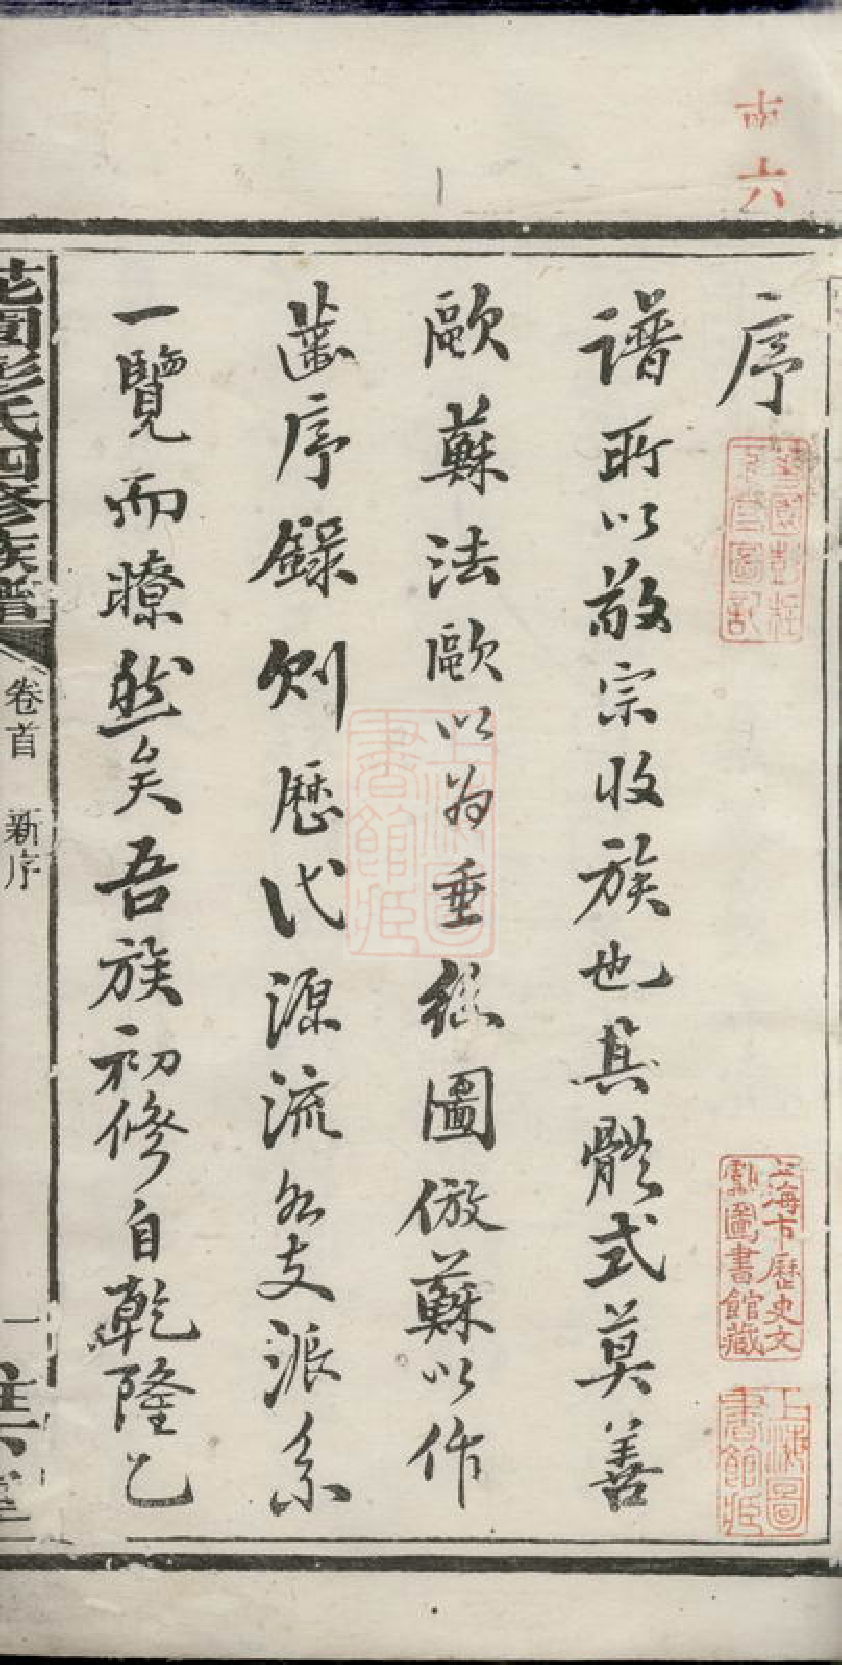 序
譜所以敬宗收族也其體式莫善
歐蘇法歐以為垂絲圖倣蘇以作
齒序錄則歷代源流各支派系
一覽而瞭然矣吾族初修自乾隆乙
花園彭氏四修族譜
卷首
新序
一
上海市歷史文
獻圖書館藏
上海圖
書館藏
上海圖
書館藏
六